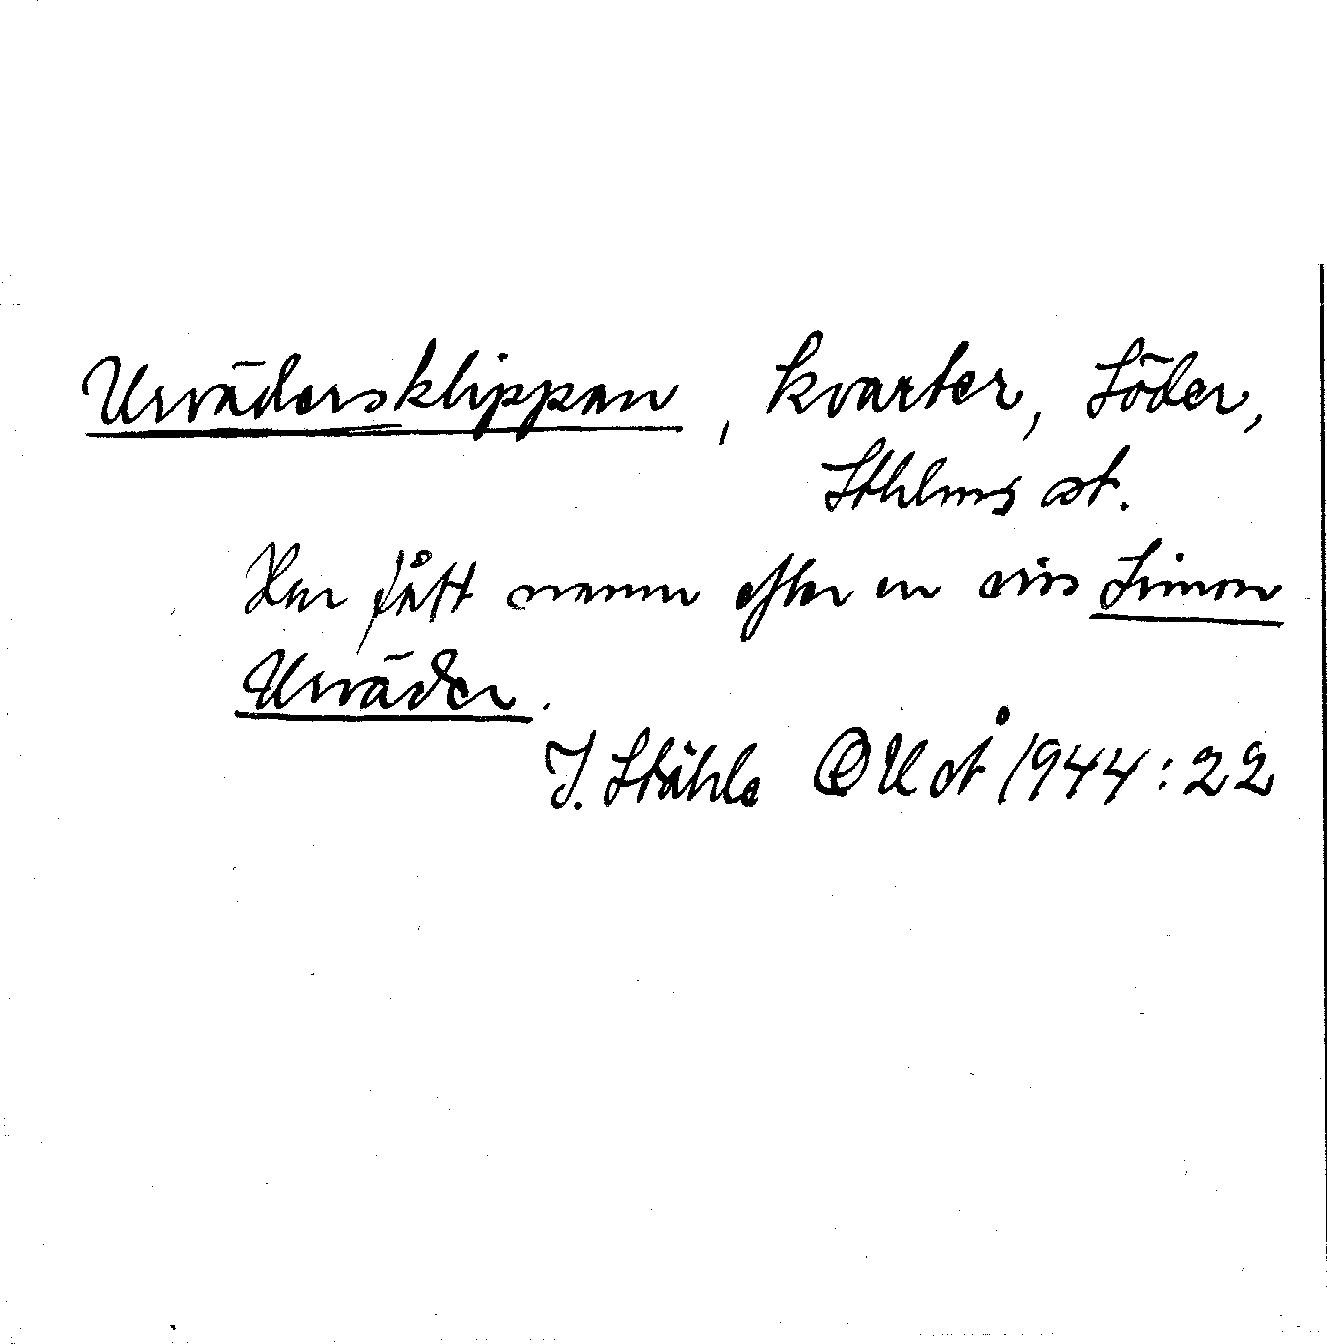 Urvädersklippan, kvarter, Söder,
Sthlms st.
Har fått namn efter en viss Simon
Urväder.
J. Ståhle 1944:22